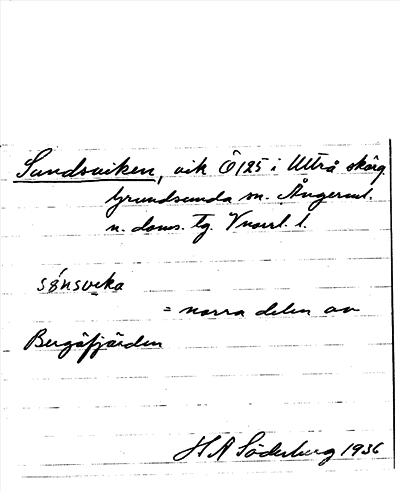 Sundsviken, vik Ö 125 i Ultrå skärg.
Grundsunda sn. Ångerml.
n. doms. tg. Vnorrl. l.
sǿnsvɩka
= norra delen av
Bergöfjärden
H A Söderberg 1936